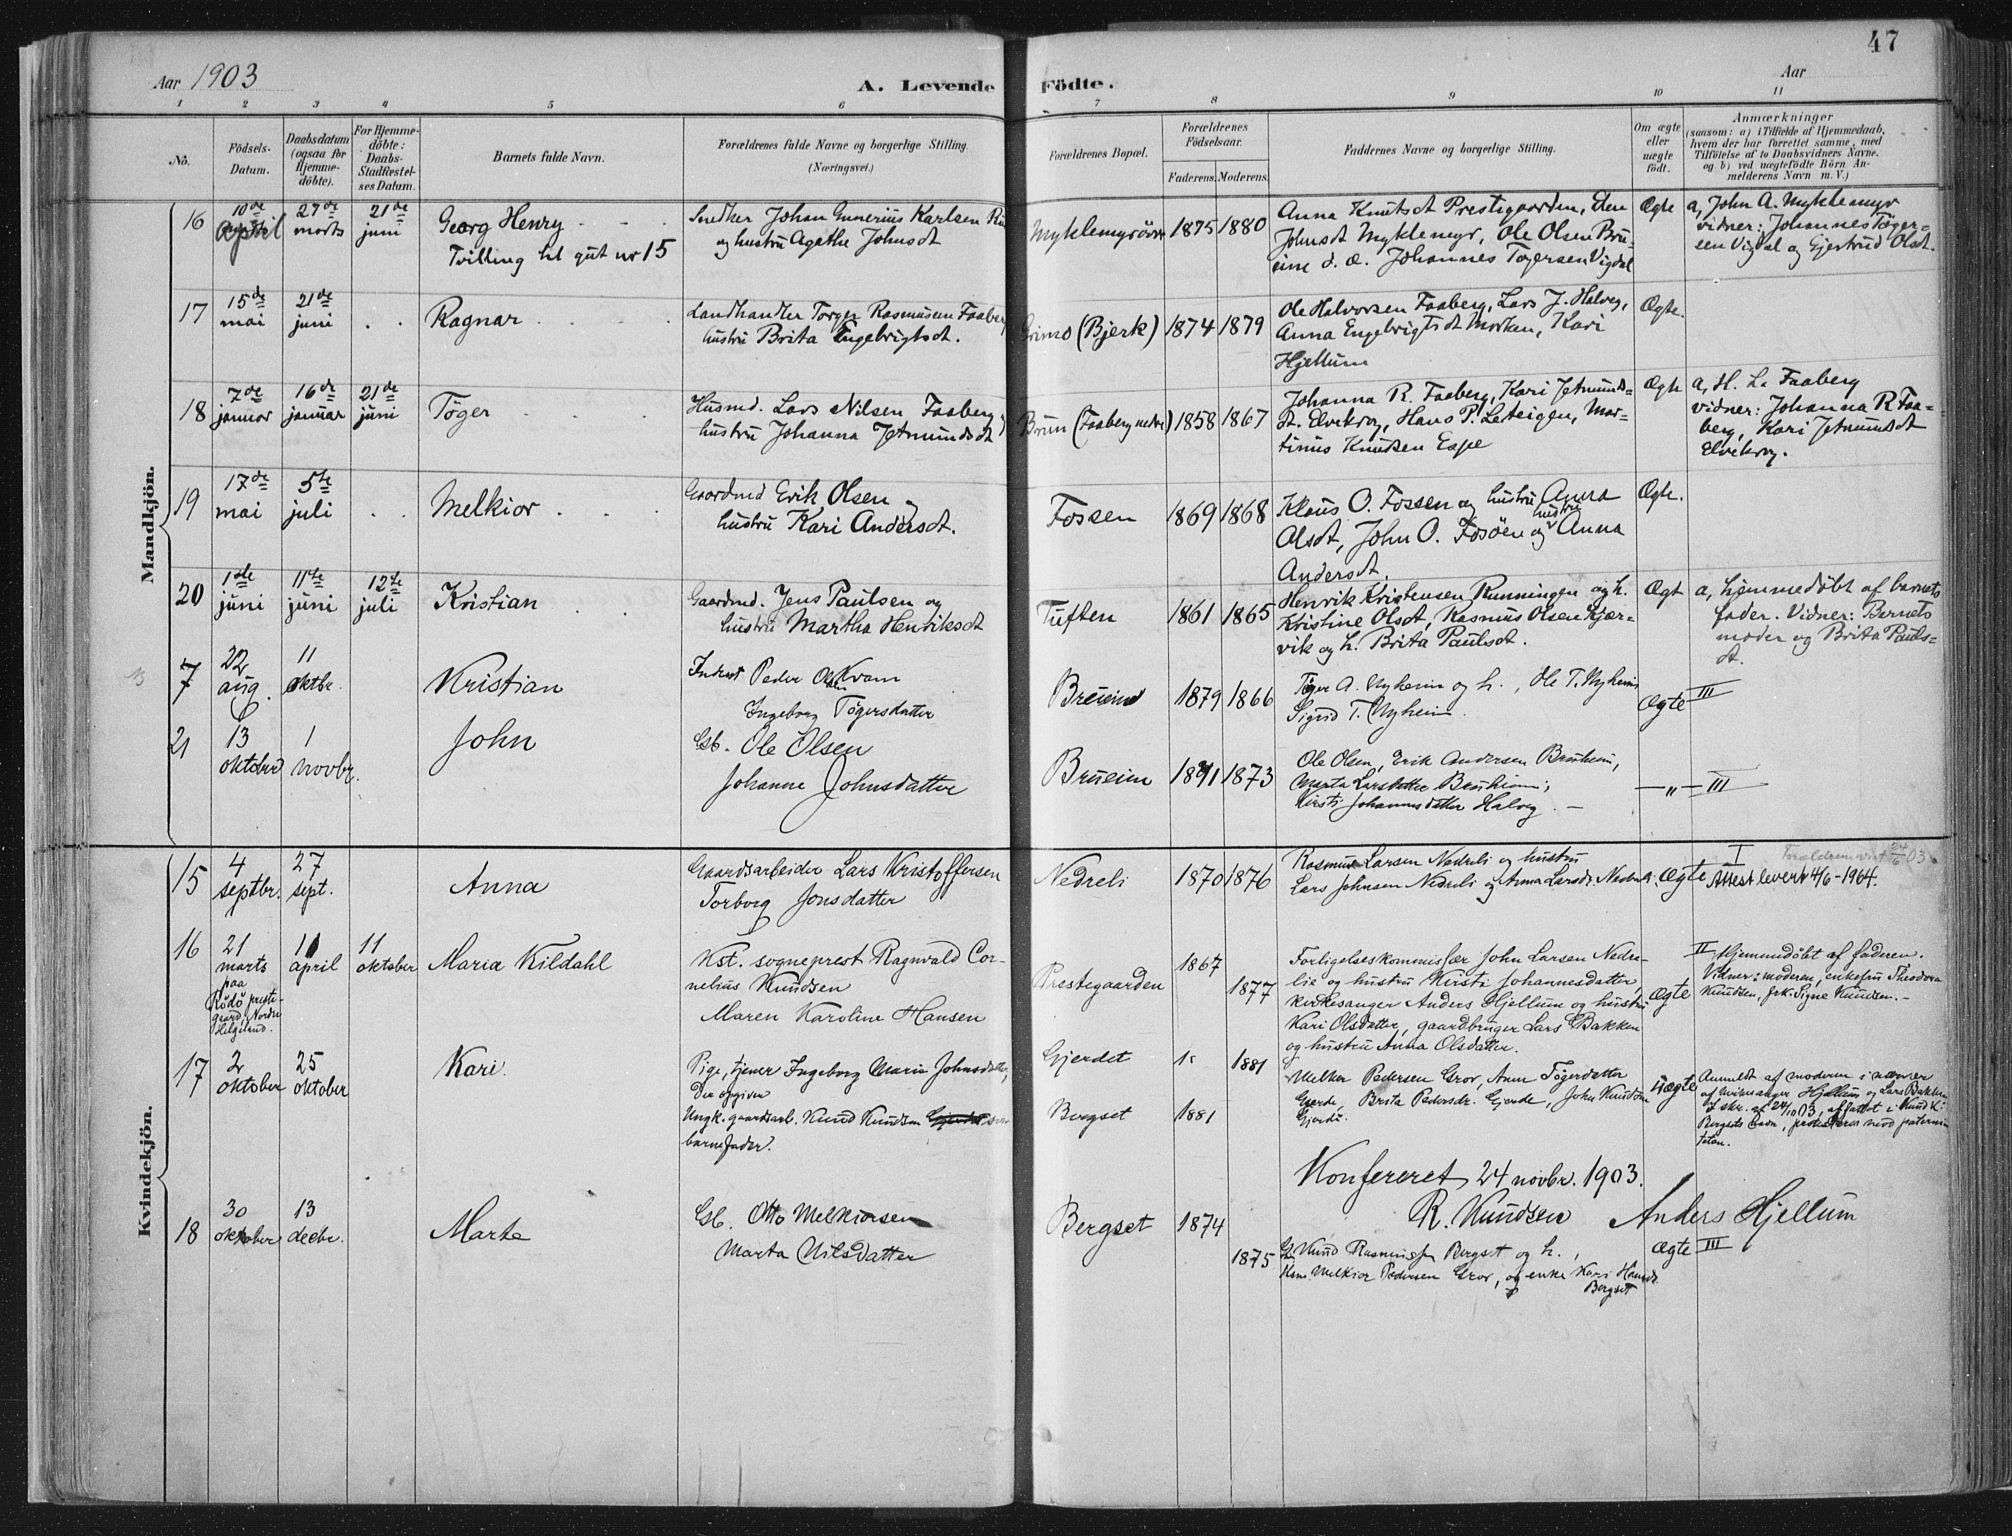 47
Aar 1903
A. Levende Födte.
Aar
1 2 3 4 5 6 7 8 9 10 11
No.
Födsels-Datum.
Daabsdatum (ogsaa for Hjemme-döbte).
For Hjemme-döbte: Daabs-Stadfestel-ses Datum.
Barnets fulde Navn.
Forældrenes fulde Navne og borgerlige Stilling. (Næringsvei.)
Forældrenes Bopæl.
Forældrenes Födselsaar.
Faderens. Moderens.
Faddernes Navne og borgerlige Stilling.
Om ægte eller uægte født.
Anmærkninger
(saasom: a) i Tilfælde af Hjemmedaab,
hvem der har forrettet samme, med
Tilföielse af to Daabsvidners Navne,
og b) ved uægtefödte Börn An-
melderens Navn m. V.)
Mandkjön.
16 10de april 27de marts 21de juni Georg Henry
Tvilling til gut nr 15
Snedker Johan Gunerius Karlsen
og hustru Agathe Johnsdt
1875 1880
Anna Knutsdt Prestegaarden, Elen
Johnsdt Myklemyr, Ole Olsen Bru-
eim d. æ. Johannes Tøgersen Vigdal
Ægte
a, John A. Myklemyr
vidner: Johannes Tøger-
sen Vigdal og Gjertrud Olsdt.
17 15de mai 21de juni Ragnar
Landhandler Torger Rasmussen Faaberg
hustru Brita Engebrigtsdt.
Grimo (Bjerk) 1874 1879
Ole Halvorsen Faaberg, Lars J. Halveg,
Anna Engebrigtsdt Morken, Kari
Hjellum
Ægte.
18 7de januar 16de januar 21de juni Tøger
Husmd. Lars Nilsen Faaberg og
hustru Johanna Jetmundsdt
Brun (Faaberg nedre) 1858 1867
Johanna R. Faaberg, Kari Jetmunds-
dt. Elvekrog, Hans P. Leteigen, Mar-
tinus Knudsen Espe
Ægte
a, H. L. Faaberg
vidner: Johanna R Faa-
berg, Kari Jetmundsdt
Elvekrog.
19 17de mai 5te juli Melkior
Gaardmd Erik Olsen og
hustru Kari Andersdt.
Fossen 1869 1868
Klaus O. Fossen og hustru Anna
Olsdt, John O. Fosøen og hustru Anna
Andersdt.
Ægte.
20 1ste juni 11te juni 12te juli Kristian
Gaardmd. Jens Paulsen og
hustru Martha Henriksdt
Tuften 1861 1865
Henrik Kristensen Runningen og h.
Kristine Olsdt, Rasmus Olsen Kjær-
vik og h. Brita Paulsdt.
Ægt
a, hjemmedøbt af barnets
fader. Vidner: Barnets
moder og Brita Pauls-
dt.
7 22 aug. 11 oktbr. Kristian
Inderst Peder Olsen Kvam
Ingeborg Tøgersdatter
Brueim 1879 1866
Tøger A. Nyheim og h., Ole T. Nyheim
Sigrid T. Nyheim.
Ægte III
21 13 oktober 1 novbr. John
Gb. Ole Olsen
Johanne Johnsdatter
Brueim 1871 1873
Ole Olsen, Erik Andersen Bruheim,
Marta Larsdatter Bruheim,
Kirsti Johannesdatter Halveg.
— „ — III
Kvindekjön.
15 4 septbr. 27 sept. Anna
Gaardsarbeider Lars Kristoffersen
Torborg Jonsdatter
Nedreli 1870 1876
Rasmus Larsen Nedreli og hustru
Lars Johnsen Nedreli og Anna Larsdt. Nedreli.
Ægte
I
Attest levert 4/6-1964.
16 21 marts paa Rödö preste-gaard, Nordre Helgeland. 11 april 11 oktober Maria Kildahl
Kst. sogneprest Ragnvald Cor-
nelius Knudsen
Maren Karoline Hansen
Prestegaarden 1867 1877
Forligelseskommisfær John Larsen Nedre-
lie og hustru Kirsti Johannesdatter,
kirkesanger Anders Hjellum og hustru
Kari Olsdatter, gaardbruger Lars Bakken
og hustru Anna Olsdatter.
Ægte
II Hjemmedøbt af faderen.
Vidner: moderen, enkefru Theodora
Knudsen, frk. Signe Knudsen.
17 2 oktober 25 oktober Kari.
Pige, tjener Ingeborg Marie Johnsdatter,
Der opgiver
Ungk. gaardsarb. Knud Knudsen Gjerdet som
barnefader.
Gjerdet 1881
Bergset 1881
Melker Pedersen Gror, Anna Tøgersdatter
Gjerde, Brita Pedersdr. Gjerde, John Knudsen
Gjerde.
Uægte
Anmeldt af moderen i nærvær
af kirkesanger Hjellum og Lars Bakken
I skr. af 24/10 03, affattet i Knud K.
Bergsets navn, protesteres mod paterni-
teten.
Konfereret 24 novbr. 1903.
R. Knudsen Anders Hjellum
18 30 oktober 13 decbr. Marta
Gb. Otto Melkiorsen
Marta Nilsdatter
Bergset 1874 1875
Gb. Knud Rasmussen Bergset og h.,
Melkior Pedersen Gror, og enke Kari Hansdt.
Bergset
Ægte III